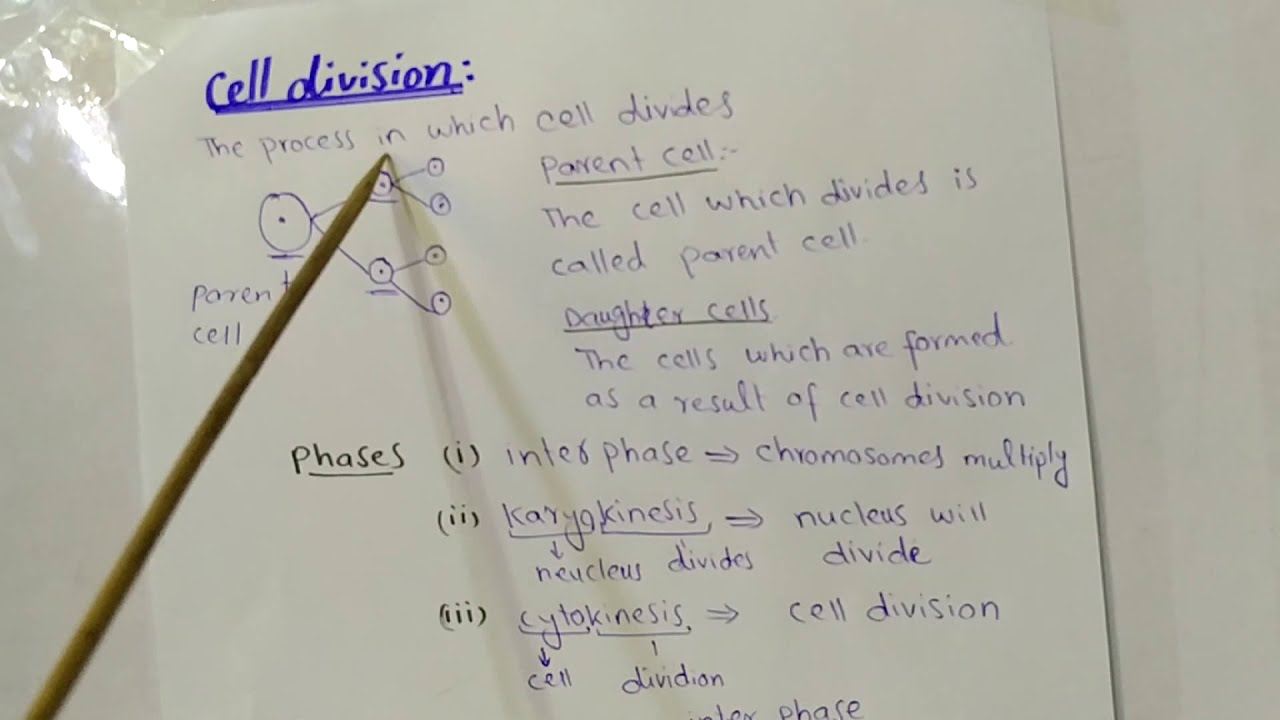 Cell division:
The process in which cell divides
Parent cell:-
The cell which divides is
called parent cell.
Parent
cell
Daughter cells
The cells which are formed
as a result of cell division
Phases (i) inter phase ⇒ chromosomes multiply
(ii) Karyokinesis ⇒ nucleus will
divide
neucleus divides
(iii) cytokinesis ⇒ cell division
cell dividion
inter phase